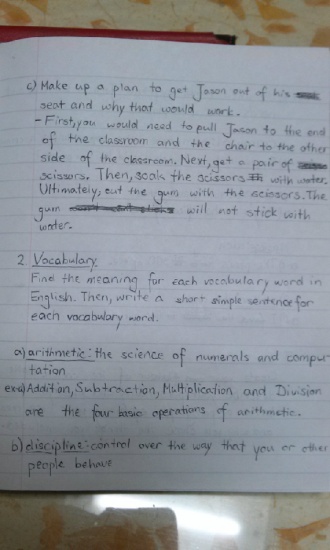 c) Make up a plan to get Jason out of his
seat and why that would work.
- First, you would need to pull Jason to the end
of the classroom and the chair to the other
side of the classroom. Next, get a pair of
scissors. Then, soak the scissors with water.
Ultimately, cut the gum with the scissors. The
gum will not stick with
water.
2 Vocabulary
Find the meaning for each vocabulary word in
English. Then, write a short simple sentence for
each vocabulary word.
a) arithmetic: the science of numerals and compu-
tation
ex: a) Addition, Subtraction, Multiplication and Division
are the four basic operations of arithmetic.
b) discipline: control over the way that you or other
people behave